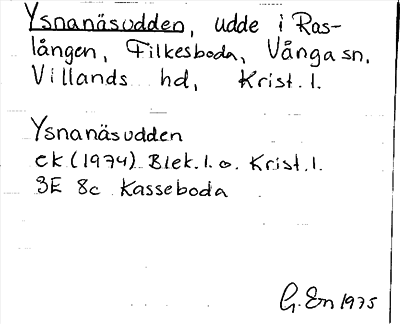 Ysnanäsudden, udde i Ras-
lången, Filkesboda, Vånga sn,
Villands hd, Krist. l.
Ysnanäsudden
ek (1974) Blek. l. o. Krist. l.
3E 8c Kasseboda
G. En 1975